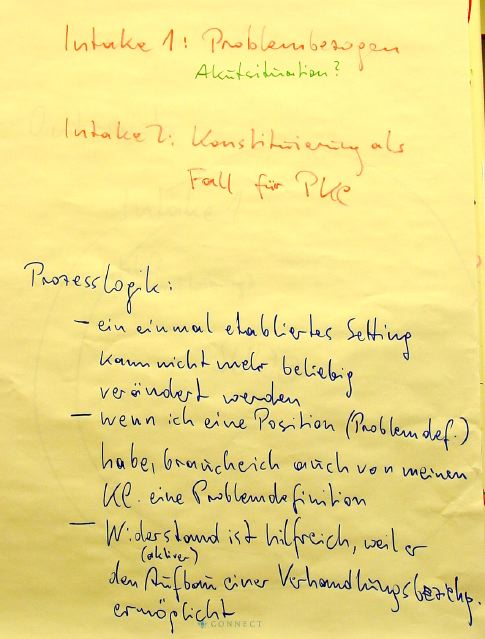 Intake 1: Problembezogen
Akutsituation?
Intake 2: Konstituierung als
Fall für PKl
Prozesslogik:
- ein einmal etabliertes Setting
kann nicht mehr beliebig
verändert werden
- wenn ich eine Position (Problemdef.)
habe, brauche ich auch von meinen
Kl. eine Problemdefinition
- Widerstand ist hilfreich, weil er
(aktiver)
den Aufbau einer Verhandlungsbeziehg.
ermöglicht
CONNECT